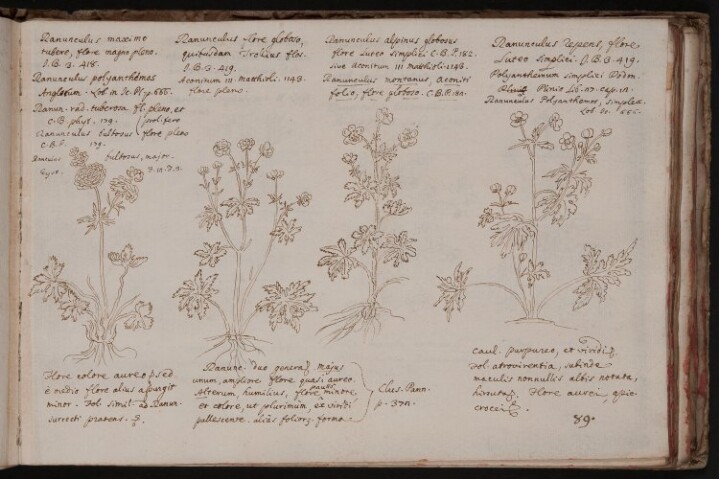 Ranunculus maximo
tubere, flore magno pleno.
J.B. 3. 418.
Ranunculus polyanthemos
Anglorum. Lob. in Ic. Pl. p. 666.
Ranun. rad. tuberosa fl. pleno, et
C.B. phyt. 179. prolifero
Ranunculus bulbosus flore pleno
C.B.P. 179.
bulbosus, major.
Eyst.
Ranunculus flore globoso,
quibusdam Trollius flos.
J.B. 3. 419.
Aconitum III Matthioli. 1248.
flore pleno.
Ranunculus alpinus globosus
flore luteo simplici C.B.P. 182.
sive Aconitum III Matthioli. 1248.
Ranunculus montanus, aconiti
folio, flore globoso. C.B.P. 182.
Ranunculus repens, flore
Luteo simplici. J.B. 3. 419.
Polyanthemum simplici Dodon.
Plinii Lib. 27. cap. 12.
Ranunculus Polyanthemos, simplex.
Lob. Ic. 666.
Flore colore aureo, sed
è medio flore alius assurgit
minor. Fol. simil. ad Ranun.
surrecti pratens.
Ranunc. duo genera, majus
unum, ampliore flore quasi aureo.
Alterum, humilius, flore paulo minore
et colore, ut plurimum, et viridi
pallescente. aliàs folior. forma.
Clus. Pann.
p. 370.
caul. purpureo, et viridi.
Fol. atrovirentia, subinde
maculis nonnullis albis notata,
hirsuta. Flore aurei,
crocei.
89.